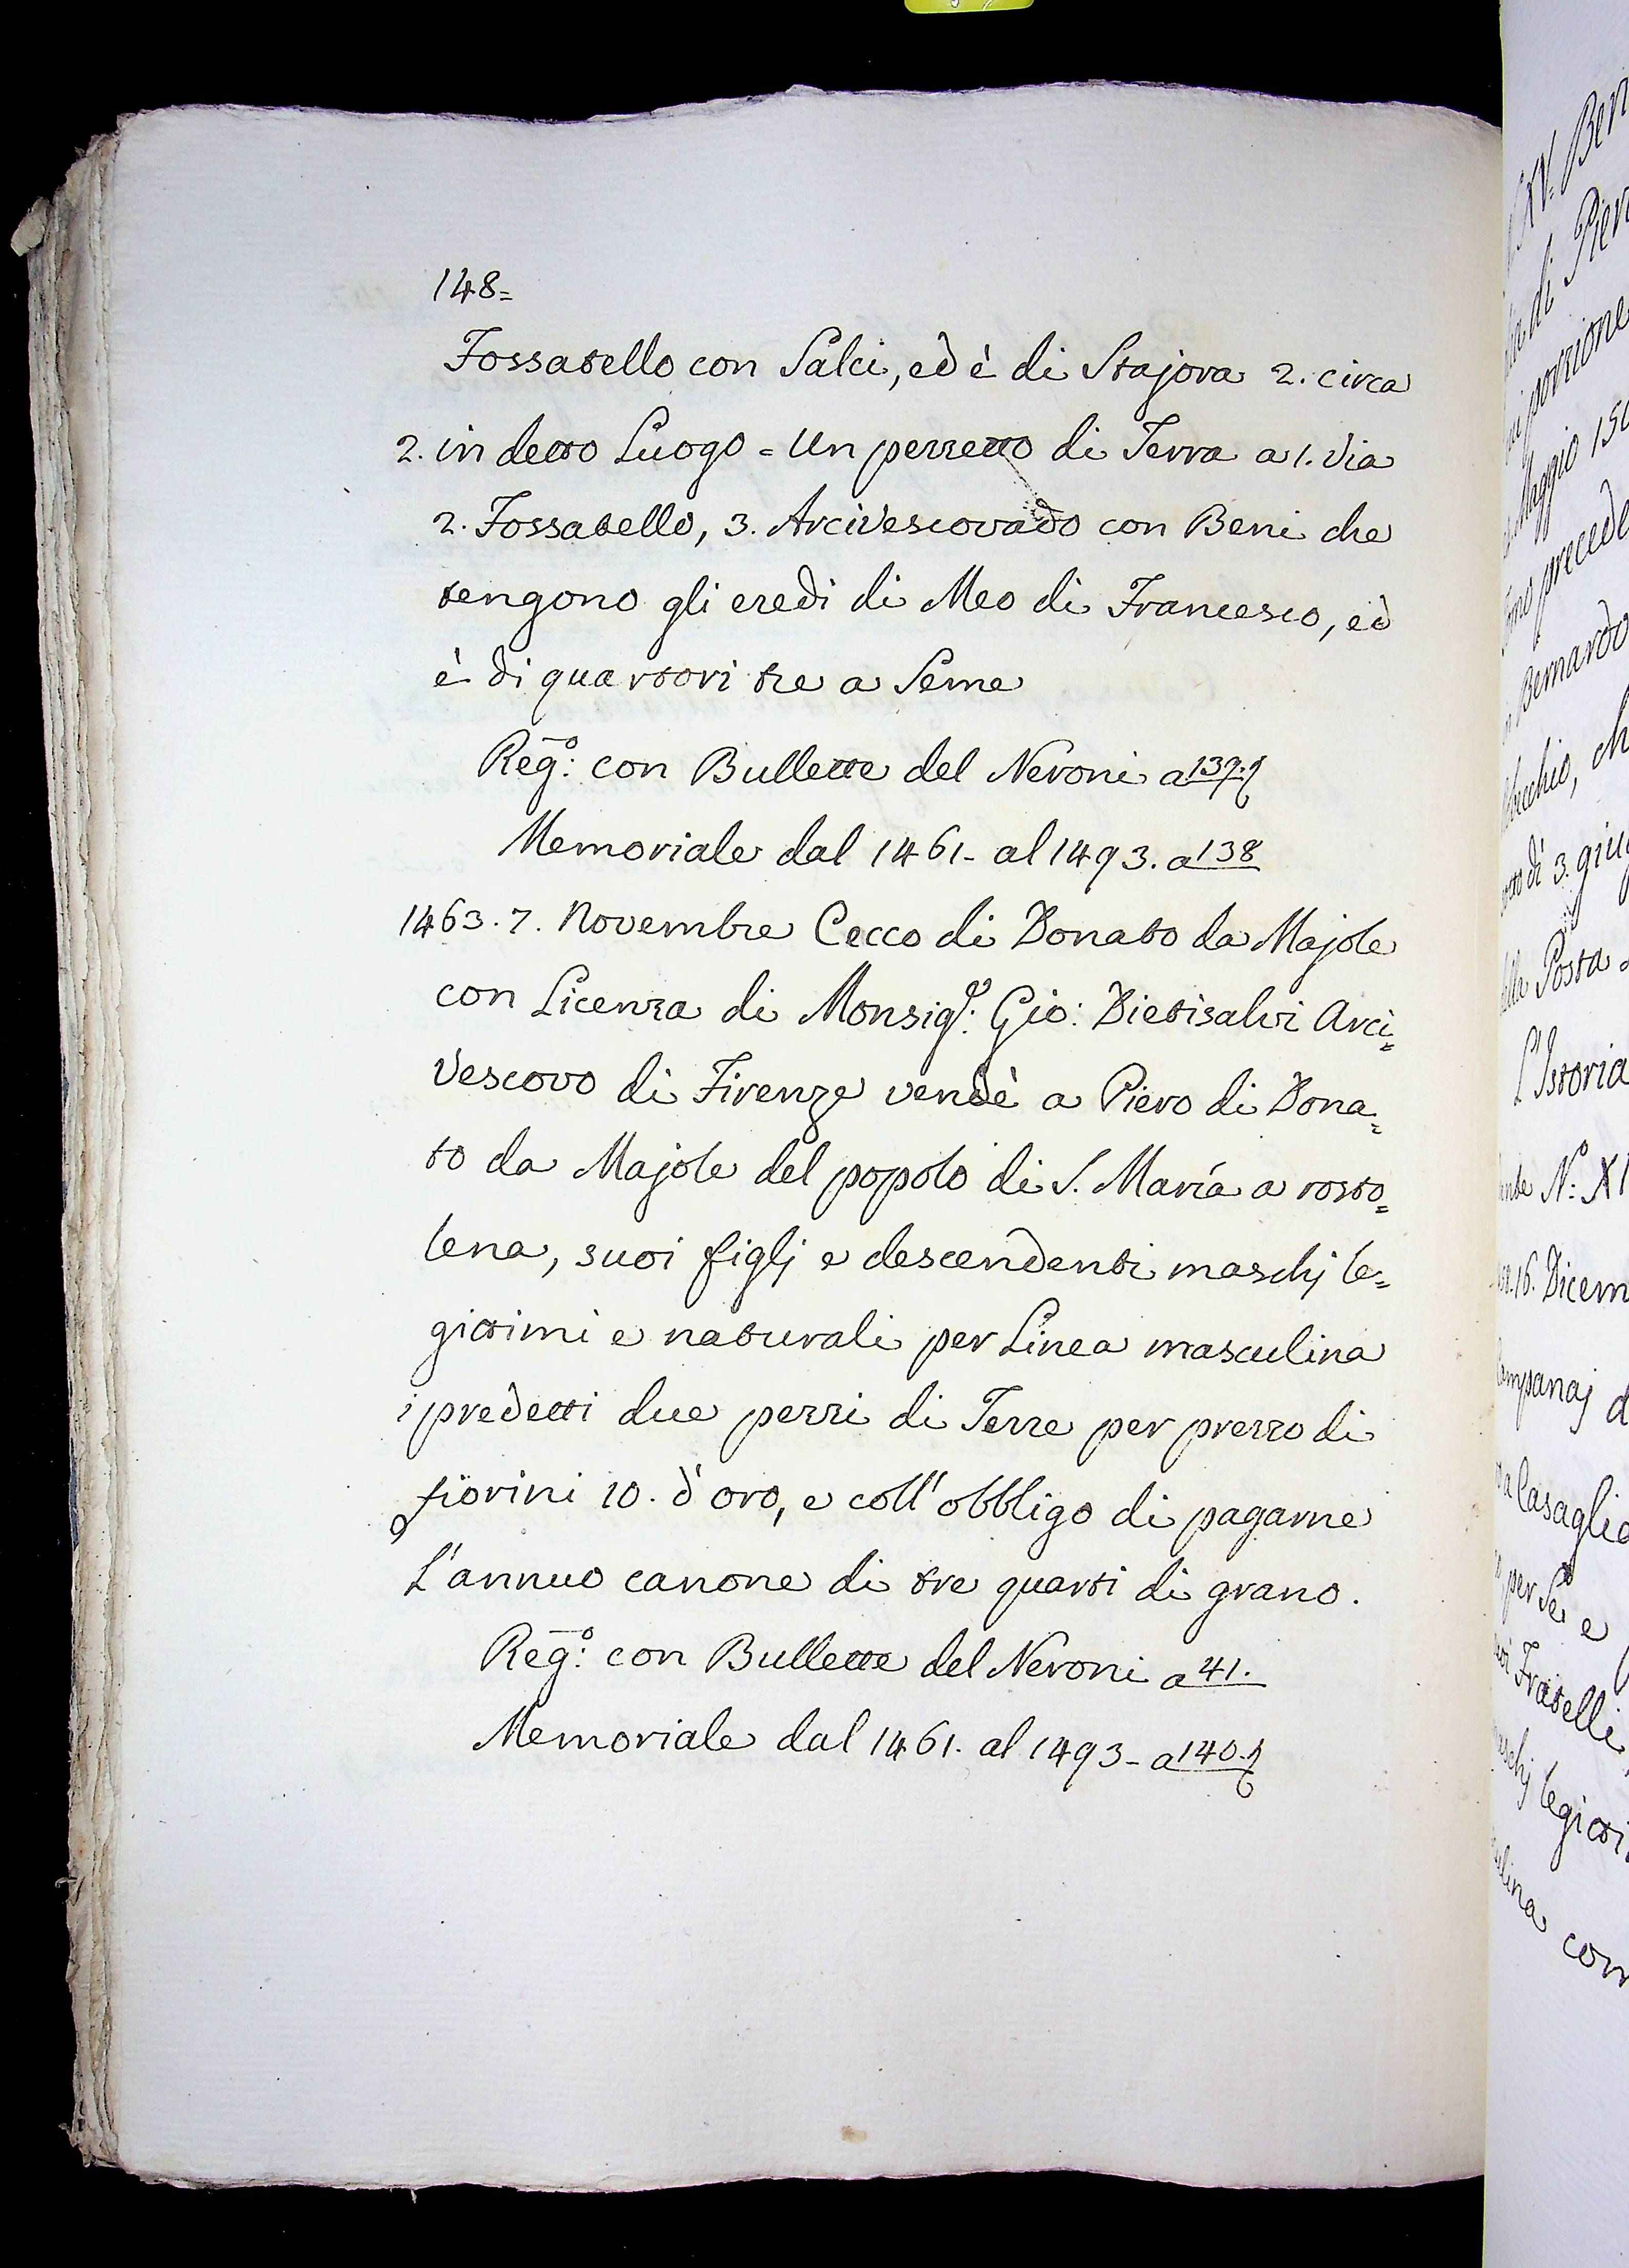 148=
Fossatello con Salci, ed è di Stajora 2. circa
2. in detto Luogo = Un pezzetto di Terra a 1. via
2. Fossatello, 3. Arcivescovado con Beni che
tengono gli eredi di Meo di Francesco, ed
è di quartori tre a Seme
Reg.º: con Bullette del Neroni a 139.
Memoriale dal 1461- al 1493. a 138
1463. 7. Novembre Cecco di Donato da Majole
con Licenza di Monsig.r: Gio: Dietisalvi Arci=
vescovo di Firenze vendè a Piero di Dona=
to da Majole del popolo di S. Maria a rosto=
lena, suoi figlj e descendenti maschj le=
gittimi e naturali per Linea masculina
i predetti due pezzi di Terre per prezzo di
fiorini 10. d'oro, e coll'obbligo di pagarne
L'annuo canone di tre quarti di grano.
Reg.º: con Bullette del Neroni a 41.
Memoriale dal 1461. al 1493- a 140.
XV. Ber
di Pier
porzione
Maggio 150
precede
Bernardo
ch
di 3. giug
Posta
L'Istoria
N.º: XI
16. Dicem
d
Casaglia
per Se e
Fratelli
legitti
com